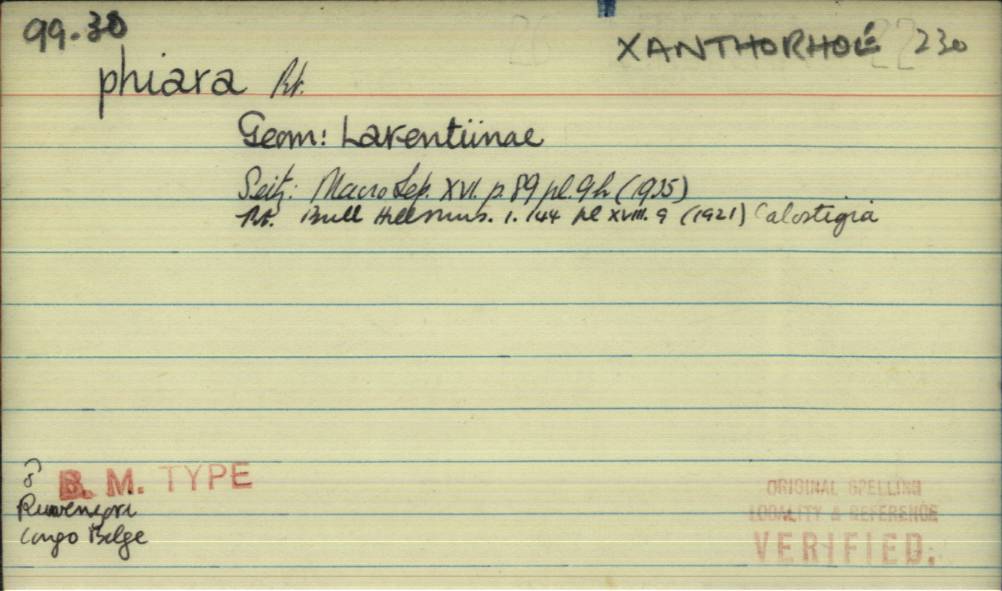 99.38
XANTHORHOË 230
phiara Prt.
Geom: Larentiinae
Seitz: Macro Lep. XVI. p. 89 pl. 9h (1935)
Prt. Bull Hill Mus. 1. 144 pl XVIII. 9 (1921) Calostigia
♂ B. M. TYPE
Ruwenzori
Congo Belge
ORIGINAL SPELLING
LOCALITY & REFERENCE
VERIFIED.